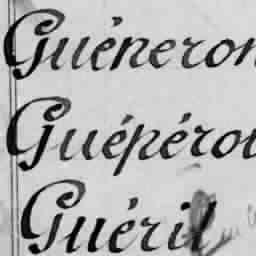 Guéneron
Guépérou
Guéril